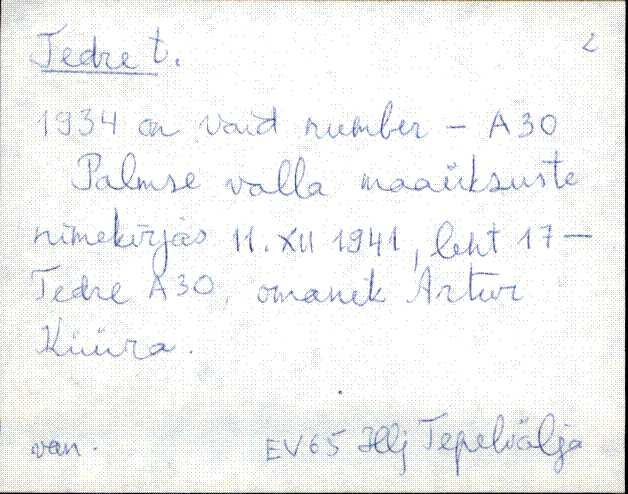 Tedre t. 2
1934 on vaid number - A30
Palmse valla maaüksuste
nimekirjas 11. XII 1941, leht 17 -
Tedre A30, omanik Artur
Küüra.
van. EV65 Hlj Tepelvälja